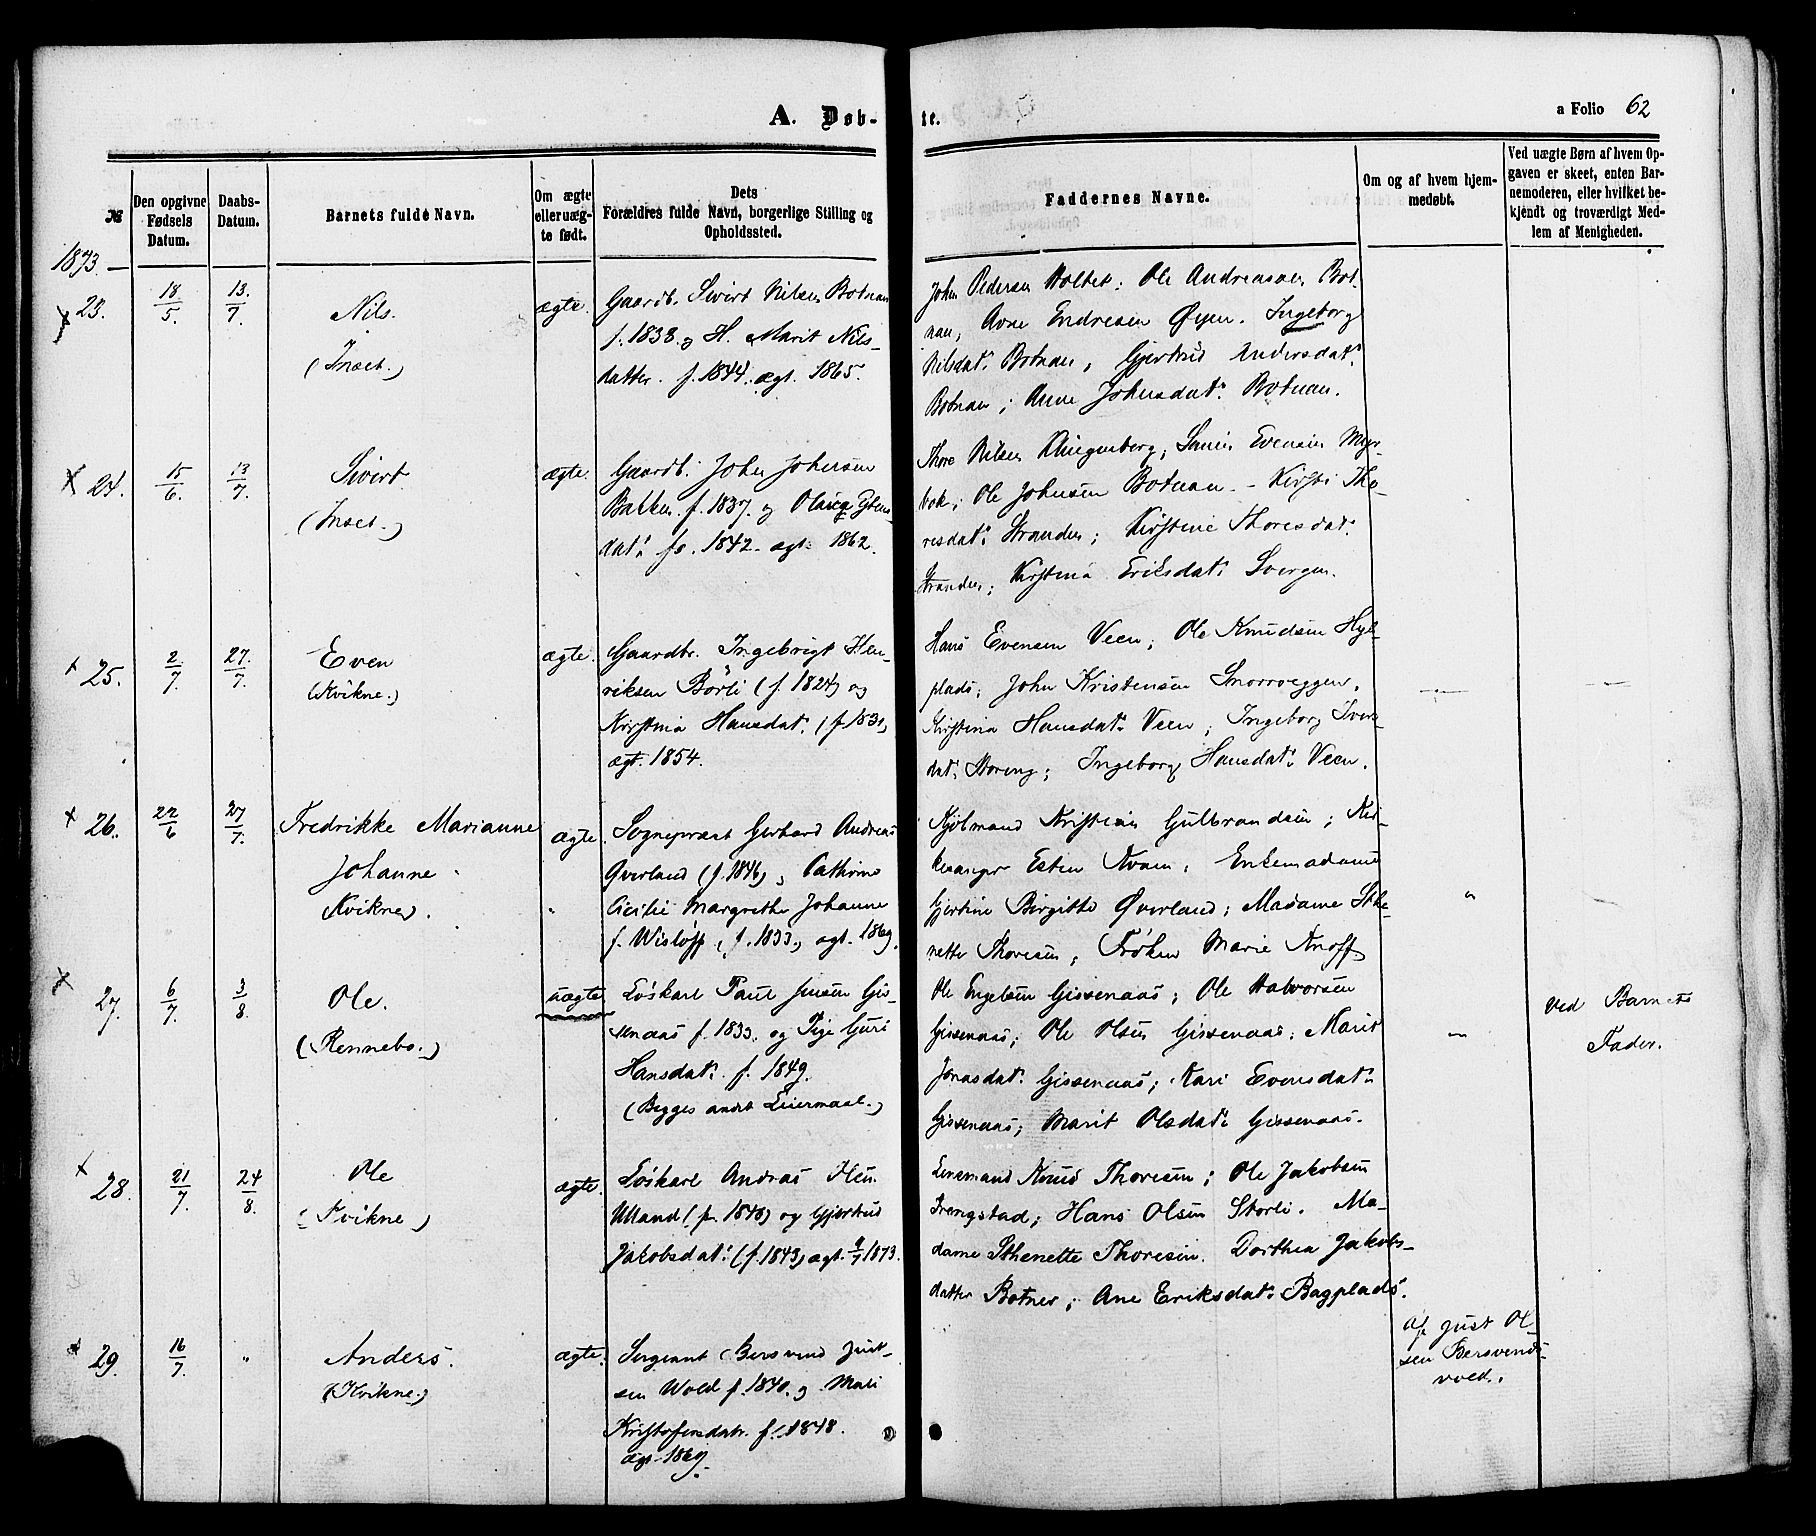 A. Døb-
te.
a Folio 62
№
Den opgivne
Fødsels
Datum.
Daabs-
Datum.
Barnets fulde Navn.
Om ægte
eller uæg-
te født.
Dets
Forældres fulde Navn, borgerlige Stilling og
Opholdssted.
Faddernes Navne.
Om og af hvem hjem-
medøbt.
Ved uægte Børn af hvem Op-
gaven er skeet, enten Bar-
nemoderen, eller hvilket be-
kjendt og troværdigt Med-
lem af Menigheden.
1873.
23.
18/5.
13./7
Nils.
(Inset.)
ægte.
Gaardb. Sivert Nilsen Botnan
f. 1838. og H. Marit Nils-
datter. f. 1844. ægt. 1865.
John Pedersen Holtet; Ole Andreasen Bot-
nan, Arne Endresen Øyen. Ingeborg
Nilsdat: Botnan, Gjertrud Andersdat:
Botnan; Anne Johnsdat: Botnan.
24.
15/6.
13/7
Sivert
(Inset.)
ægte.
Gaardb. John Johnsen
Bakken. f. 1837. og
dat: fø. 1842. ægt: 1862.
Thore Nilsen Klingenberg; Evensen Myr-
bok; Ole Johnsen Botnan - Kirsti Tho-
resdat: Stranden; Kirstine Thoresdat:
Stranden; Kirstina Eriksdat:
25.
2/7
27./7
Even
(Kvikne.)
ægte.
Gaardbr. Ingebrigt Hen-
riksen Börli (f. 1824) og
Kirstina Hansdat: (f. 1831)
ægt. 1854.
Hans Evensen Veen; Ole Knudsen Hyl-
plads; John Kristensen Snorroeggen.
Kirstina Hansdat: Veen; Ingeborg Ivers-
dat: Storeng; Ingeborg Hansdat: Veen.
26.
22/6
27/7.
Fredrikke Marianne
Johanne
(Kvikne).
ægte.
Sognepræst Gerhard Andreas
Øverland (f. 1846) og Cathrine
Cicilie Margrethe Johanne
f. Wisløff (f. 1833) ægt. 1869.
Kjølmand Kristian Gulbrandsen; Kir-
kesanger Esten Kvam; Enkemadame
Gjertine Birgitte Øverland; Madame Sthe-
nette Thoresen; Frøken Marie Knoff
"
27.
6/7
3/8
Ole.
(Rennebo.)
uægte
Löskarl Paul Jonsen Gis-
senaas f. 1833. og Pige Guri
Hansdat: f. 1849.
(Begges andet Leiermaal.)
Ole Engelsen Gissenaas; Ole Halvorsen
Gissenaas; Ole Olsen Gissenaas; Marit
Jonasdat: Gissenaas; Kari Evensdat:
Gissenaas; Marit Olsdat: Gissenaas.
Ved Barnets
Fader.
28.
21/7.
24/8.
Ole
(Kvikne)
ægte.
Löskarl Andreas Olsen
Ulland (f. 1848) og Gjertrud
Jakobsdat: (f. 1843) ægt. 9/7 1873.
Lensmand Knud Thoresen; Ole Jakobsen
Frengstad; Hans Olsen Storli. Ma-
dame Sthenette Thoresen. Dorthea Jakobs-
datter Botner; Ane Eriksdat: Bagplads.
29.
16/7.
"
Anders.
(Kvikne)
ægte.
Sergeant Bersvend Just-
sen Wold f. 1840. og Mari
Kristofersdatr. f. 1848.
ægt. 1869.
Af Just Ol-
sen Bersvends-
vold.